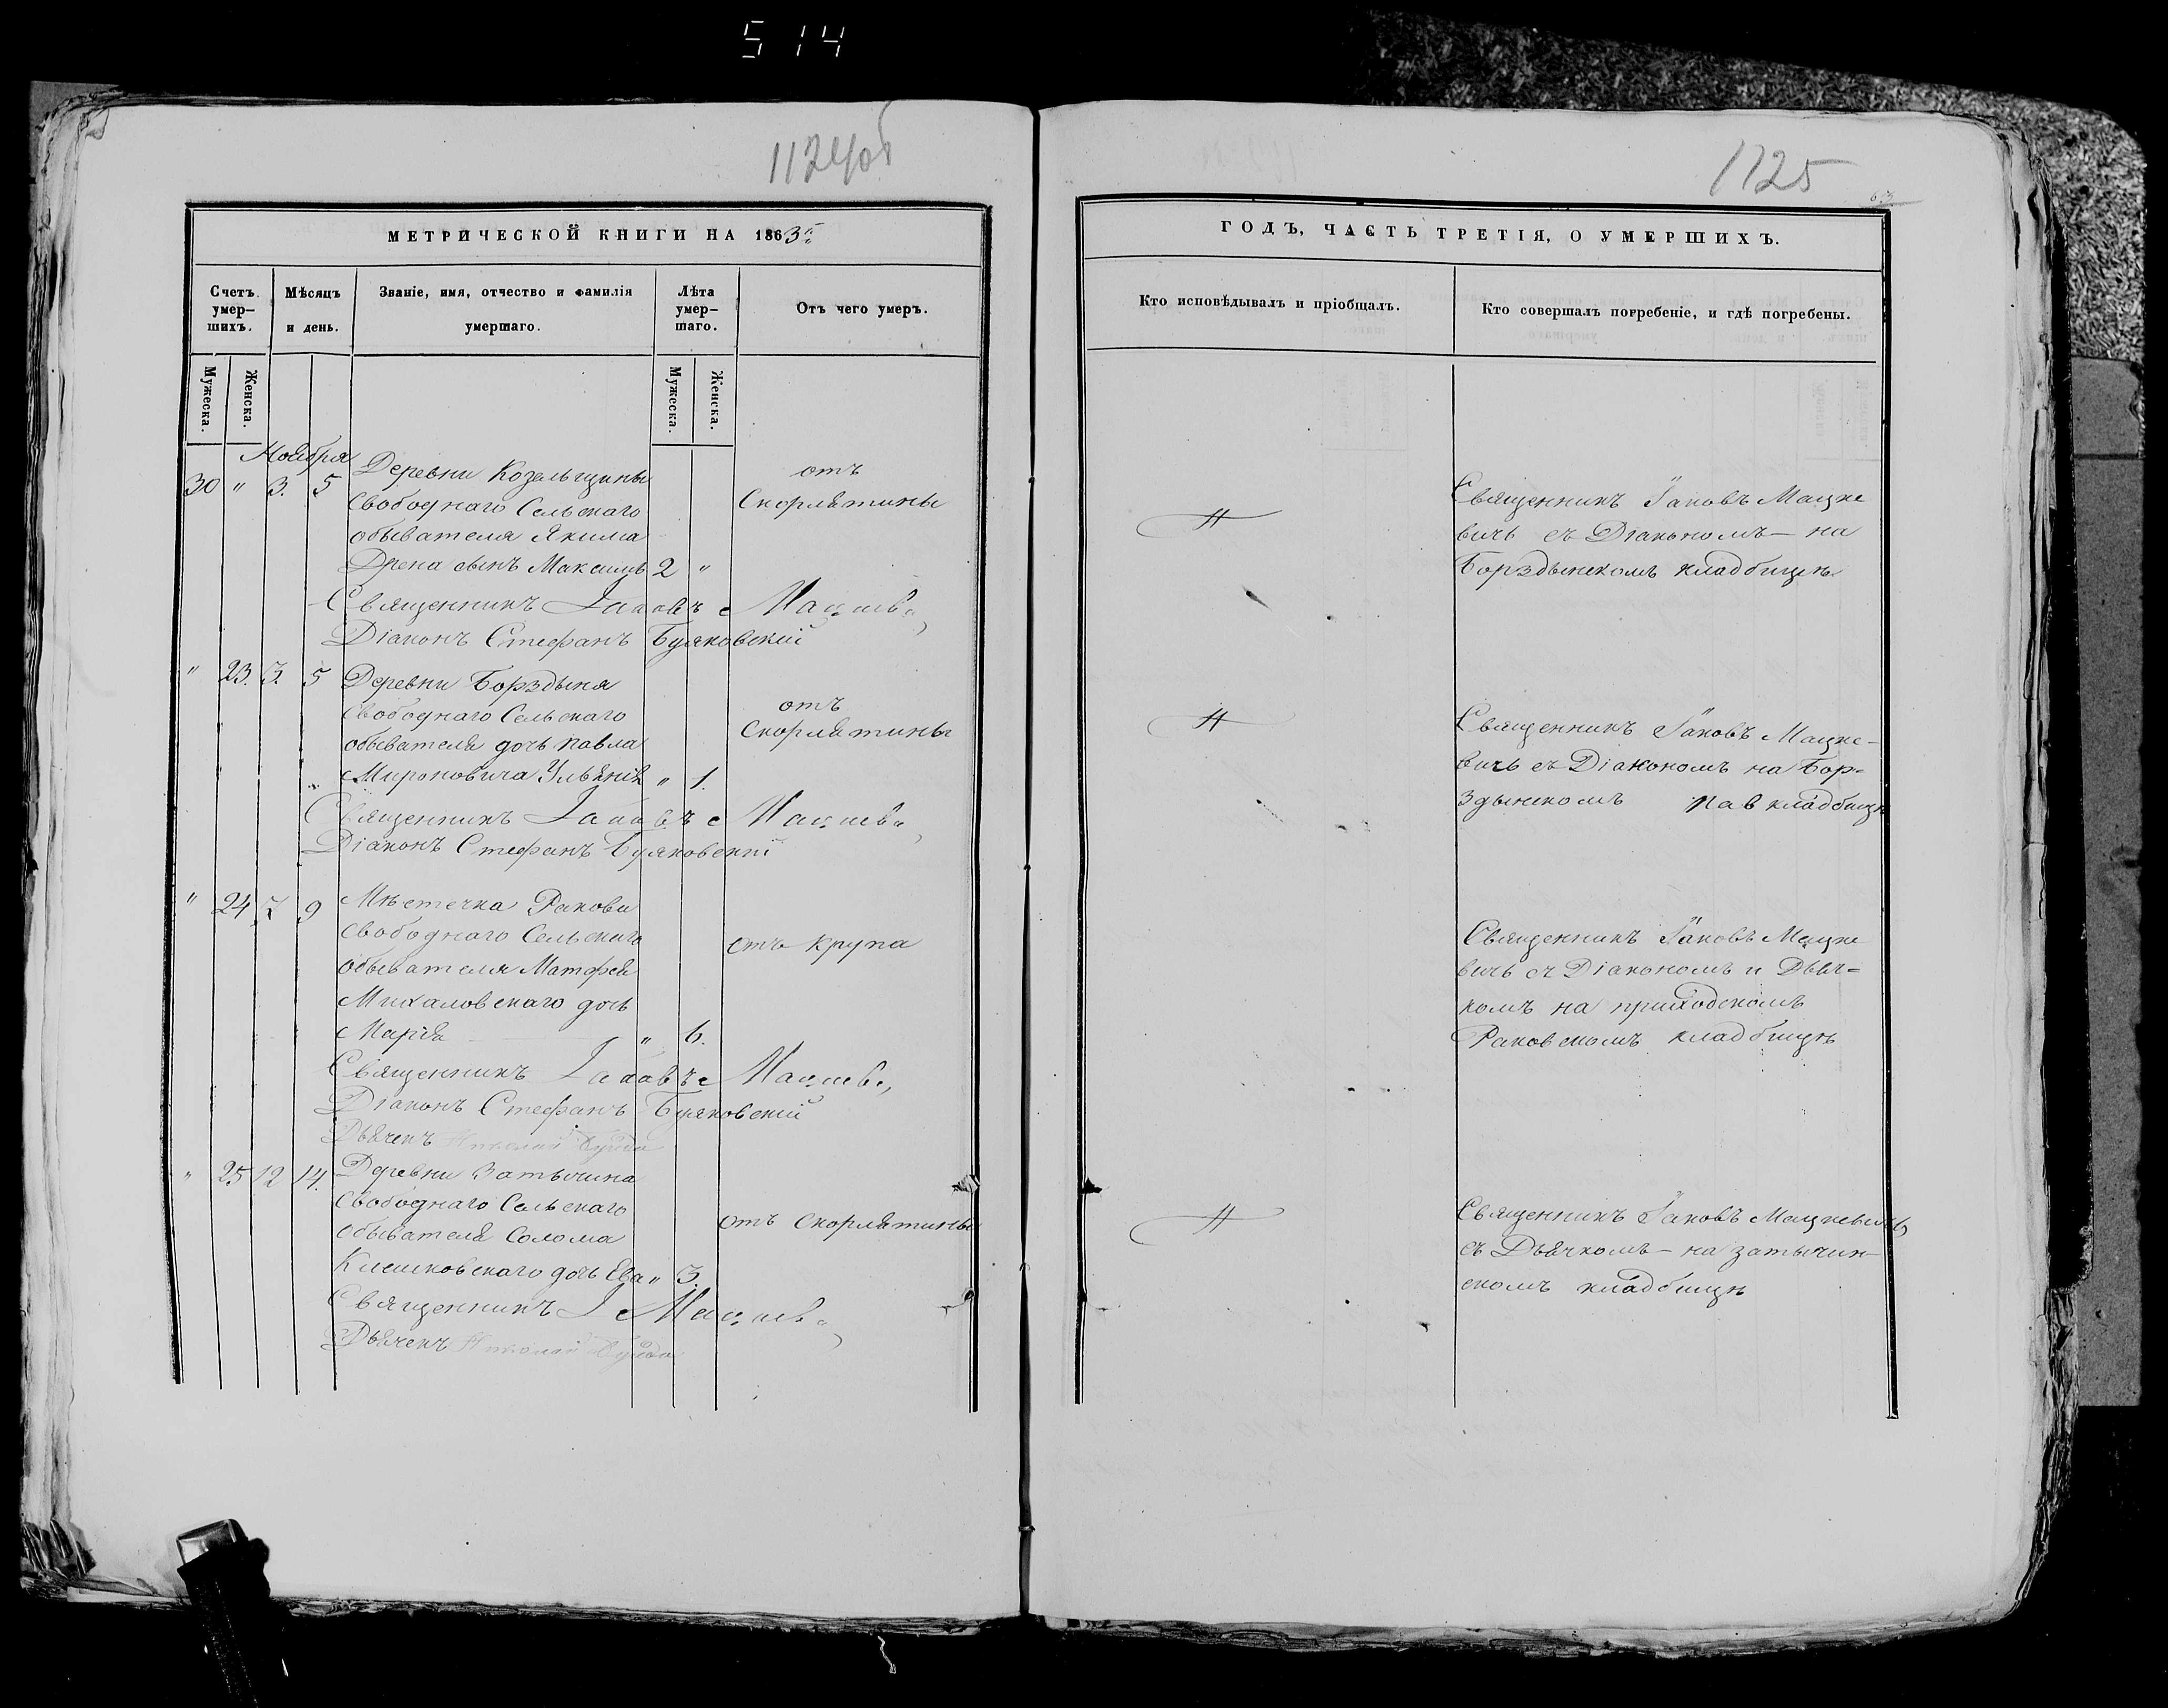 514
1124об
МЕТРИЧЕСКОЙ КНИГИ НА 1863й
Счетъ умершихъ.
Мѣсяцъ и день.
Званіе, имя, отчество и фамилія умершаго.
Лѣта умершаго.
Отъ чего умеръ.
Мужеска.
Женска.
Мужеска.
Женска.
Ноября
30 " 3. 5 Деревни Козельщины
свободнаго Сельскаго
обывателя Якима
Дрена сынъ Максимъ 2 "
отъ
Скорлятины
Священникъ Іаковъ Мацкев.
Діаконъ Стефанъ Буяковскій
" 23. 3. 5 Деревни Борздыня
свободнаго Сельскаго
обывателя дочь Павла
Мироновича Ульянія " 1.
отъ
Скорлятины
Священникъ Іаковъ Мацкев.
Діаконъ Стефанъ Буяковскій
" 24 7 9 Мѣстечка Ракова
свободнаго Сельскаго
обывателя Матфея
Михаловскаго дочь
Марія " 6.
отъ крупа
Священникъ Іаковъ Мацкев.
Діаконъ Стефанъ Буяковскій
Дьячекъ Николай
" 25 12 14. Деревни Затычина
свободнаго Сельскаго
обывателя Солома
Клешковскаго дочь Ева " 3.
отъ скорлятины
Священникъ І Мацкев.
Дьячекъ Николай
1125
ГОДЪ, ЧАСТЬ ТРЕТІЯ, О УМЕРШИХЪ.
Кто исповѣдывалъ и пріобщалъ.
Кто совершалъ погребеніе, и гдѣ погребены.
Священникъ Іаковъ Мацке
вичь съ Діакономъ – на
Борздынскомъ кладбищѣ
Священникъ Іаковъ Мацке-
вичь съ Діакономъ на Бор-
здынскомъ кладбищѣ
Священникъ Іаковъ Мацке
вичь съ Діакономъ и Дьяч-
комъ на приходскомъ
Раковскомъ кладбищѣ
Священникъ Іаковъ Мацкевичь
съ Дьячкомъ – на затычин-
скомъ кладбищѣ